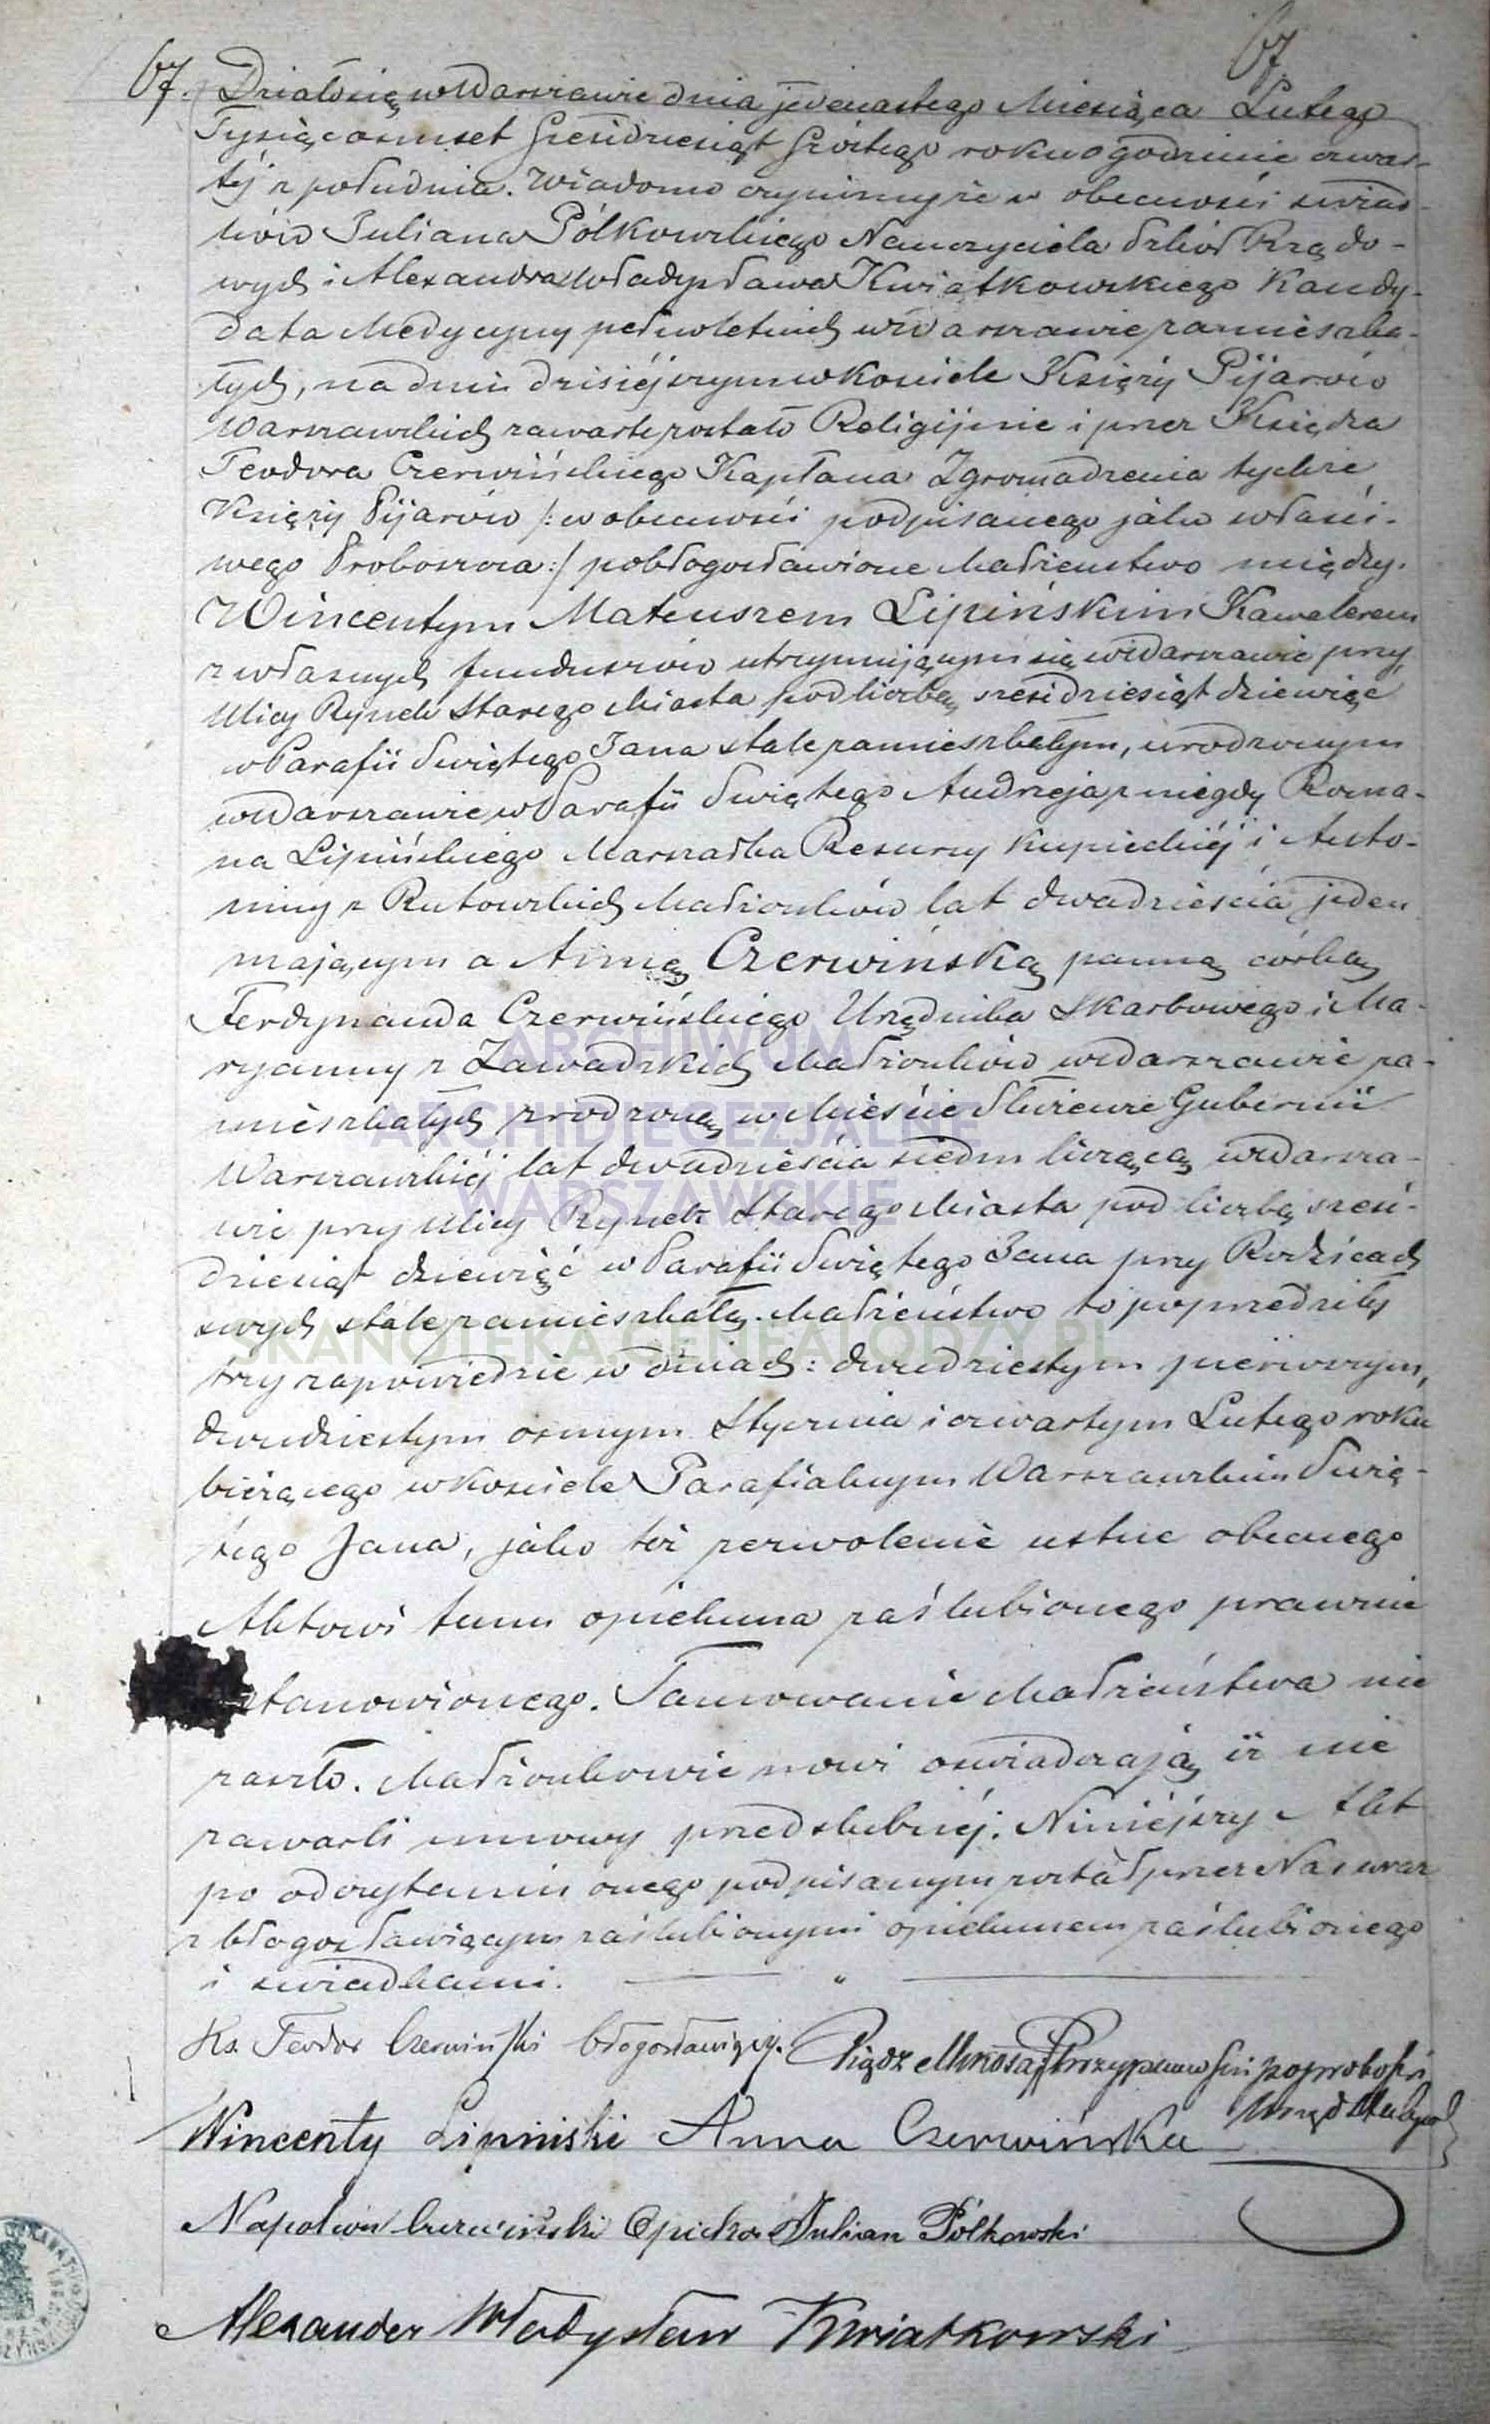 67.
67
Działo się w Warszawie dnia jedenastego Miesiąca Lutego
Tysiąc ośmset sześćdziesiąt szóstego roku o godzinie czwar-
téj z południa. Wiadomo czynimy że w obecności świad-
ków Juliana Pólkowskiego Nauczyciela Szkół Rządo-
wych i Alexandra Władysława Kwiatkowskiego Kandy-
data Medycyny pełnoletnich w Warszawie zamieszka-
łych, na dniu dzisiéjszym w Kościele Księży Pijarów
Warszawskich zawarte zostało Religijnie i przez Księdza
Teodora Czerwińskiego Kapłana Zgromadzenia tychże
Księży Pijarów /: w obecności podpisanego jako właści-
wego Proboszcza :/ pobłogosławione Małżeństwo między.
Wincentym Mateuszem Lipińskim Kawalerem
z własnych funduszów utrzymującym się w Warszawie przy
Ulicy Rynek Starego Miasta pod liczbą sześćdziesiąt dziewięć
w Parafii Świętego Jana stale zamieszkałym, urodzonym
w Warszawie w Parafii Świętego Andrzeja z niegdy Roma-
na Lipińskiego Marszałka Resursy Kupieckiéj i Anto-
niny z Rutowskich Małżonków lat dwadzieścia jeden
mającym a Anną Czerwińską panną córką
Ferdynanda Czerwińskiego Urzędnika Skarbowego i Ma-
ryanny z Zawadzkich Małżonków w Warszawie za-
mieszkałych zrodzoną w Mieście Gubernii
Warszawskiéj lat dwadzieścia siedm liczącą w Warsza-
wie przy Ulicy Rynek Starego Miasta pod liczbą sześć-
dziesiąt dziewięć w Parafii Świętego Jana przy Rodzicach
swych stale zamieszkałą. Małżeństwo to poprzedziły
trzy zapowiedzie w dniach: dwudziestym pierwszym,
dwudziestym ósmym Stycznia i czwartym Lutego roku
bieżącego w Kościele Parafialnym Warszawskim Świę-
tego Jana, jako też zezwolenie ustne obecnego
Aktowi temu opiekuna zaślubionego prawnie
stanowionego. Tamowanie Małżeństwa nie
zaszło. Małżonkowie nowi oświadczają iż nie
zawarli umowy przedślubnéj. Niniéjszy Akt
po odczytaniu onego podpisanym został przez Nas wraz
z błogosławiącym zaślubionymi opiekunem zaślubionego
i świadkami.
Ks. Teodor Czerwiński błogosławiący.
Wincenty Lipiński Anna Czerwińska
Napoleon Czerwiński Opiekun Julian Pólkowski
Alexander Władysław Kwiatkowski
ARCHIWUM
ARCHIDIECEZJALNE
WARSZAWSKIE
SKANOTEKA.GENEALODZY.PL